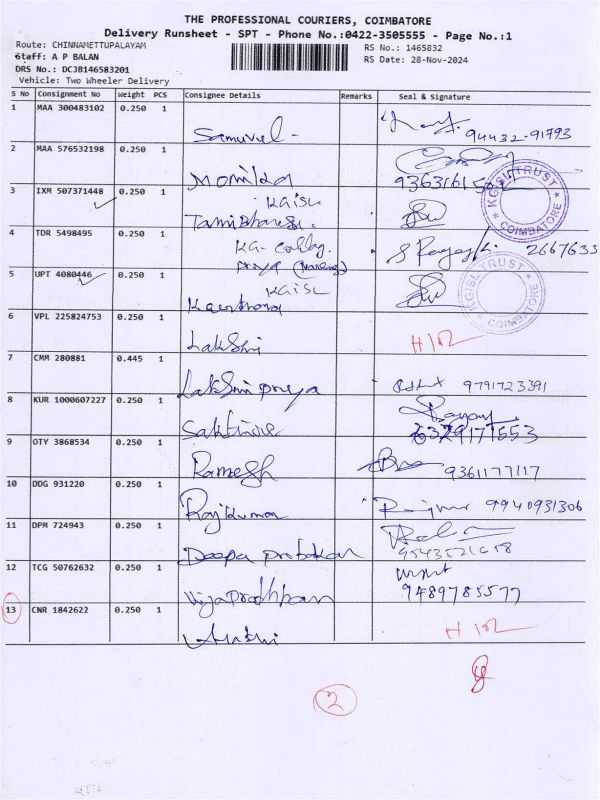 THE PROFESSIONAL COURIERS, COIMBATORE
Delivery Runsheet - SPT - Phone No.:0422-3505555 - Page No.:1
Route: CHINNAMETTUPALAYAM RS No.: 1465832
Staff: A P BALAN RS Date: 28-Nov-2024
DRS No.: DCJB146583201
Vehicle: Two Wheeler Delivery
S No Consignment No Weight PCS Consignee Details Remarks Seal & Signature
1 MAA 300483102 0.250 1
Samuvel - 94432-91793
2 MAA 576532198 0.250 1
Monika
3 IXM 507371448 0.250 1 KGISL
KGISL TRUST COIMBATORE
4 TDR 5498495 0.250 1 KG. College
Priya 2667633
5 UPT 4080446 0.250 1 KGISL
Keerthana
KGISL TRUST COIMBATORE
6 VPL 225824753 0.250 1
Lakshmi
7 CMM 280881 0.445 1
Lakshmi priya 9791723391
8 KUR 1000607227 0.250 1
9 OTY 3868534 0.250 1
Ramesh 9361177117
10 DDG 931220 0.250 1
Rajkumar 9940931306
11 DPM 724943 0.250 1
Deepa prabakar 9543521658
12 TCG 50762632 0.250 1
9489785577
13 CNR 1842622 0.250 1
2